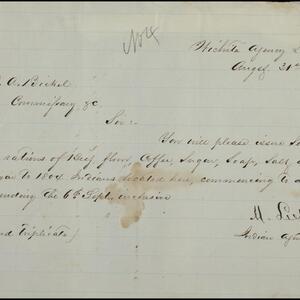 No 4
Wichita Agency
Augst 31st
A. Bickel
Commissary &c.
Sir:-
You will please issue
rations of Beef, flour, Coffee, Sugar, Soap, Salt,
to 1804 Indians located here, commencing
ending the 6th Sept. inclusive
M.
Indian Agent
Triplicate